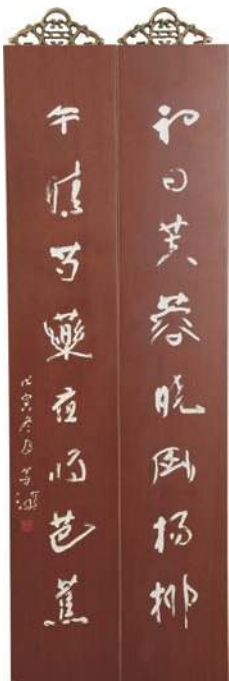 初日芙蓉晓風杨柳
午晴芍藥夜雨芭蕉
戊寅冬月